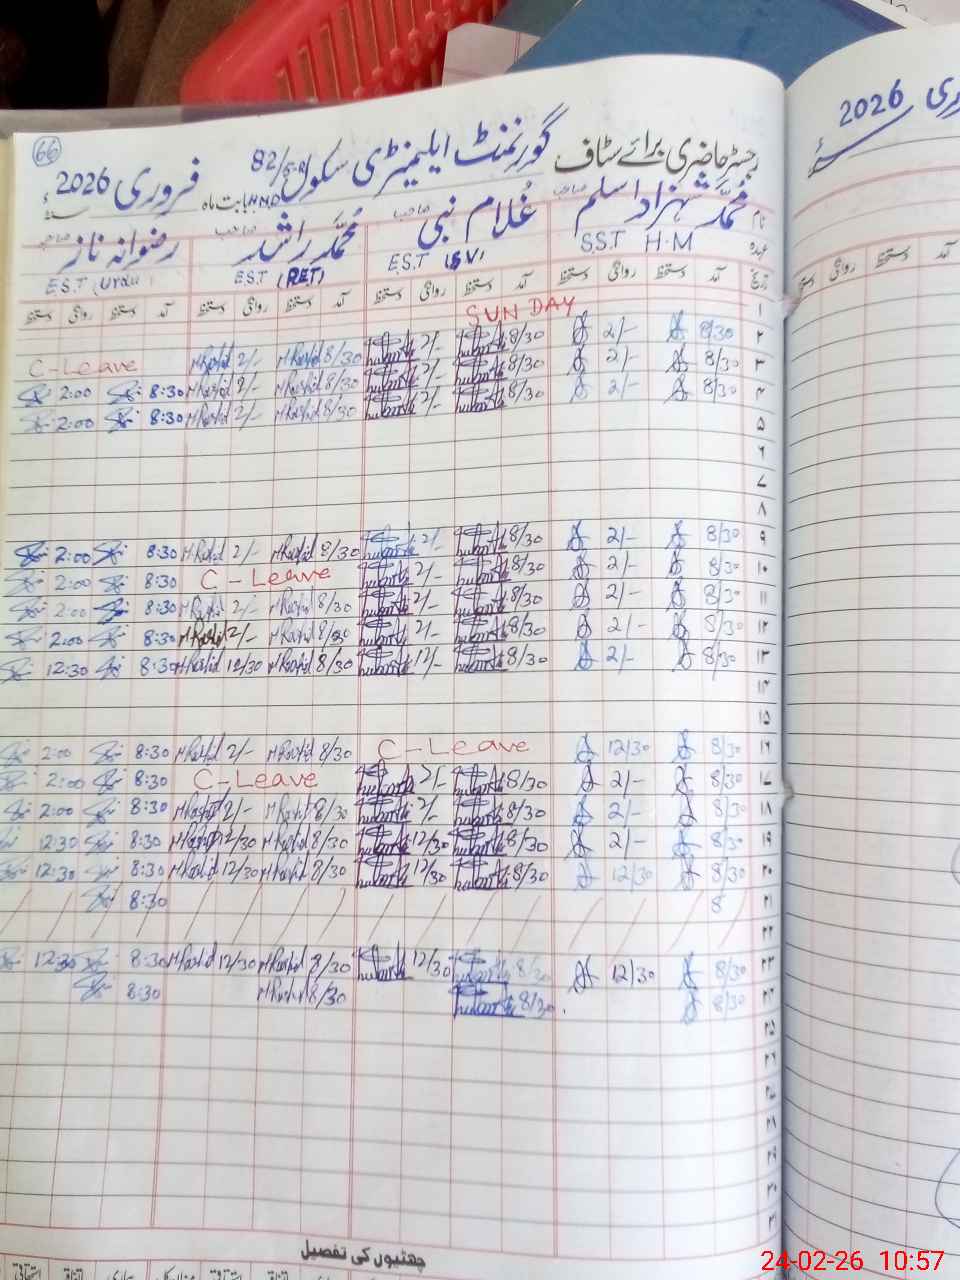 66
رجسٹر حاضری برائے سٹاف گورنمنٹ ایلیمنٹری سکول 82/5-R HND بابت ماہ فروری 2026 سنہ ء
2026
نام محمد شہزاد اسلم صاحب غلام نبی صاحب محمد راشد صاحب رضوانہ ناز صاحبہ
عہدہ S.S.T H.M E.S.T (SV) E.S.T (RET) E.S.T (Urdu)
تاریخ آمد دستخط روانگی دستخط آمد دستخط روانگی دستخط آمد دستخط روانگی دستخط آمد دستخط روانگی دستخط
۱ SUNDAY
۲ 8/30 2/- 8/30 2/- 8/30 M Rashid 2/- M Rashid C-Leave
۳ 8/30 2/- 8/30 2/- 8/30 M Rashid 2/- M Rashid 8:30 2:00
۴ 8/30 2/- 8/30 2/- 8/30 M Rashid 2/- M Rashid 8:30 2:00
۵
۶
۷
۸
۹ 8/30 2/- 8/30 2/- 8/30 M Rashid 2/- M Rashid 8:30 2:00
۱۰ 8/30 2/- 8/30 2/- C-Leave 8:30 2:00
۱۱ 8/30 2/- 8/30 2/- 8/30 M Rashid 2/- M Rashid 8:30 2:00
۱۲ 8/30 2/- 8/30 2/- 8/30 M Rashid 2/- M Rashid 8:30 2:00
۱۳ 8/30 2/- 8/30 8/30 M Rashid 12/30 M Rashid 8:30 12:30
۱۴
۱۵
۱۶ 8/30 12/30 C-Leave 8/30 M Rashid 2/- M Rashid 8:30 2:00
۱۷ 8/30 2/- 8/30 2/- C-Leave 8:30 2:00
۱۸ 8/30 2/- 8/30 2/- 8/30 M Rashid 2/- M Rashid 8:30 2:00
۱۹ 8/30 2/- 8/30 12/30 8/30 M Rashid 12/30 M Rashid 8:30 12:30
۲۰ 8/30 12/30 8/30 12/30 8/30 M Rashid 12/30 M Rashid 8:30 12:30
۲۱ 8 8:30
۲۲
۲۳ 8/30 12/30 8/30 12/30 8/30 M Rashid 12/30 M Rashid 8:30 12:30
۲۴ 8/30 8/30 8/30 M Rashid 8:30
۲۵
۲۶
۲۷
۲۸
۲۹
۳۰
۳۱
چھٹیوں کی تفصیل
24-02-26 10:57